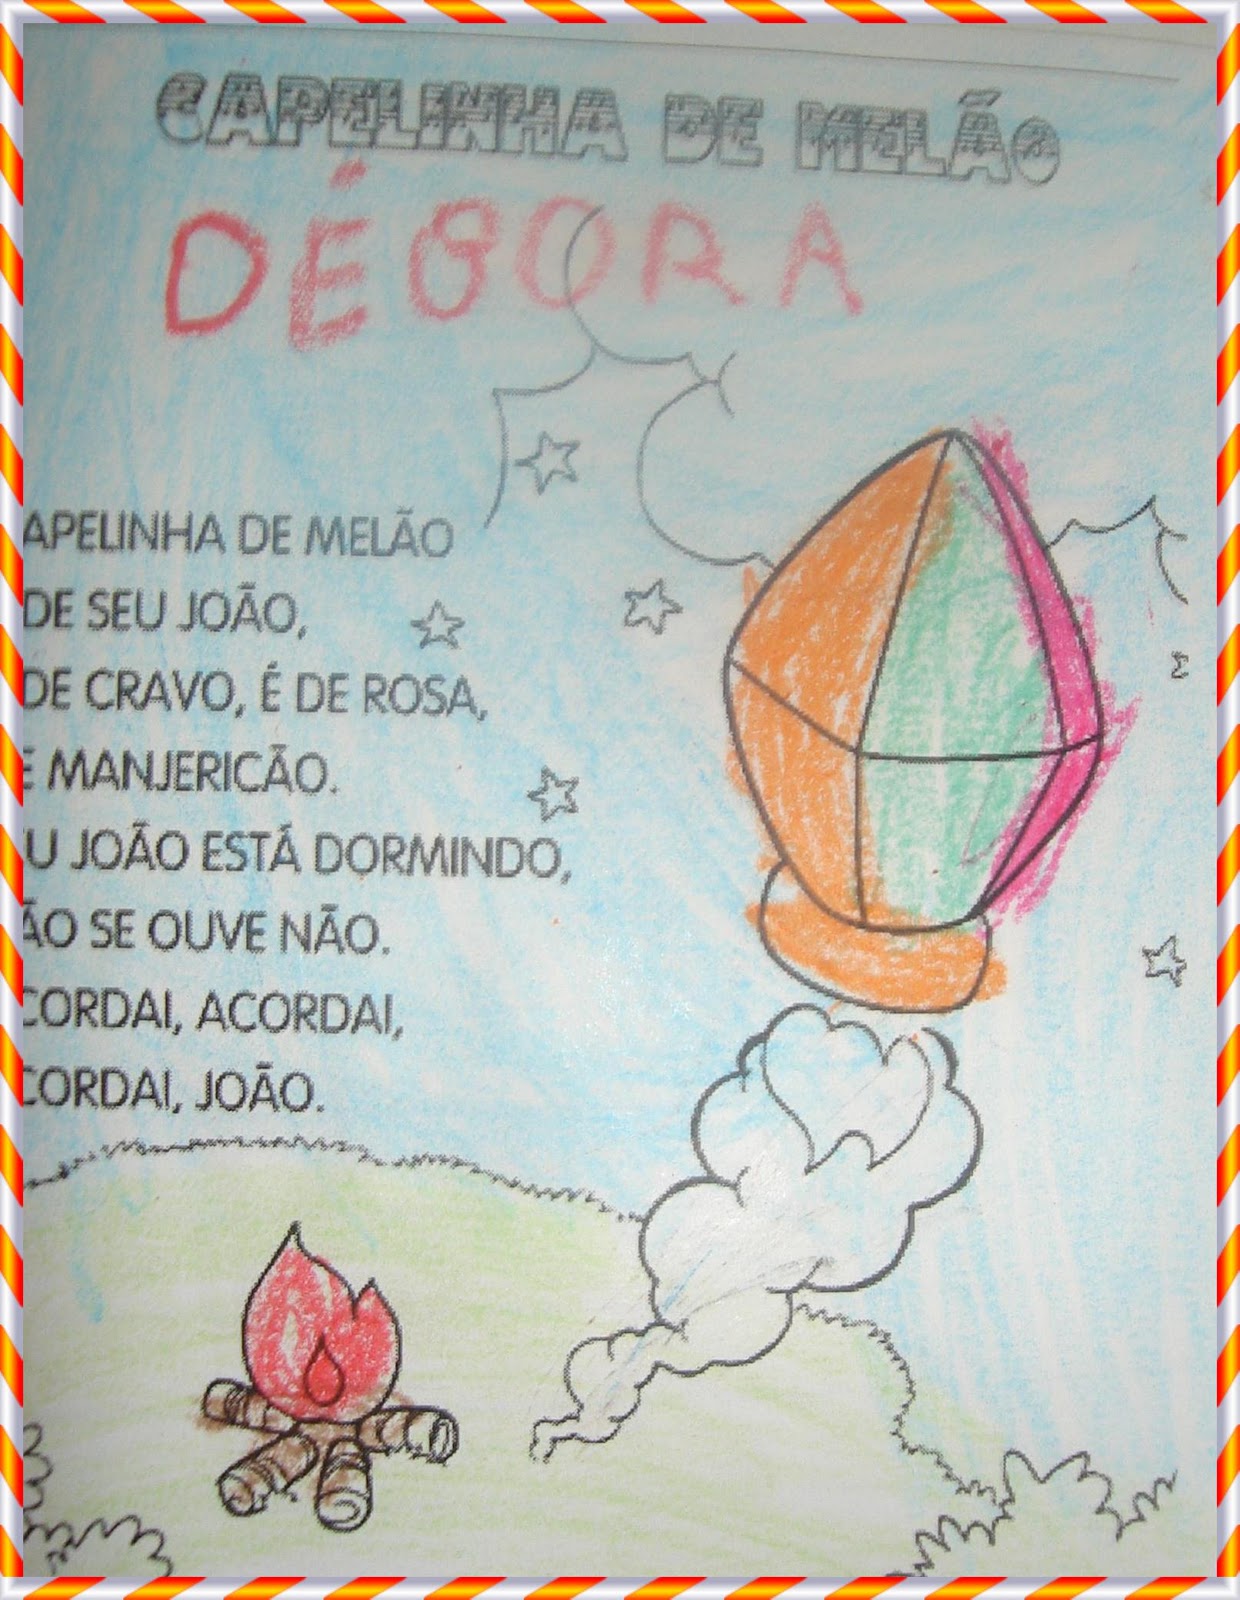 CAPELINHA DE MELÃO
DÉBORA
APELINHA DE MELÃO
DE SEU JOÃO,
DE CRAVO, É DE ROSA,
E MANJERICÃO.
U JOÃO ESTÁ DORMINDO,
ÃO SE OUVE NÃO.
CORDAI, ACORDAI,
CORDAI, JOÃO.